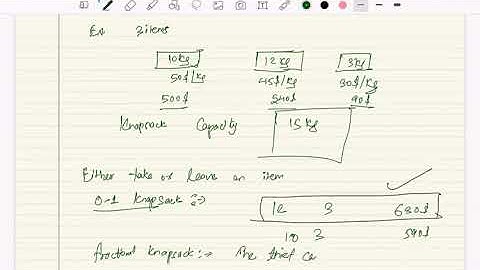 Ex 3 items
10kg 12kg 3kg
50$/kg 45$/kg 30$/kg
500$ 540$ 90$
Knapsack Capacity 15kg
Either take or leave an item
0-1 Knapsack :->
12 3 630$
10 3 590$
fractional knapsack :-> The thief ca